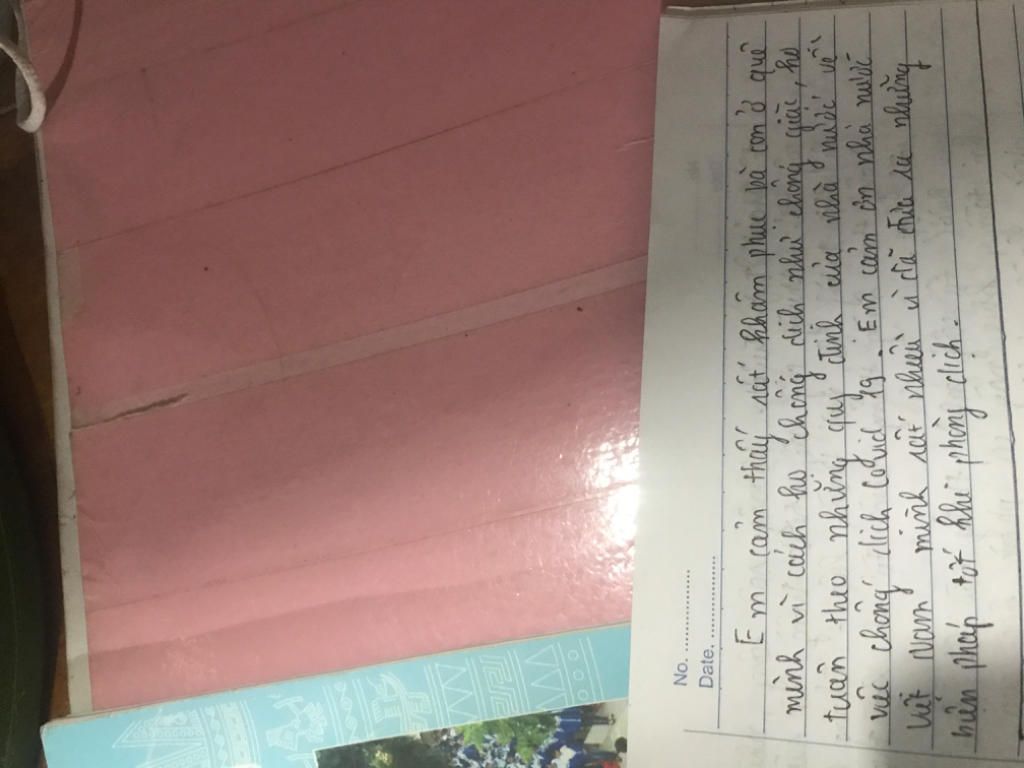 No. ....................
Date. ....................
Em cảm thấy rất khâm phục bà con ở quê
mình vì cách họ chống dịch như chống giặc, họ
tuân theo những quy định của nhà nước về
việc chống dịch Covid 19. Em cảm ơn nhà nước
Việt Nam mình rất nhiều vì đã đưa ra những
biện pháp tốt khi phòng dịch.